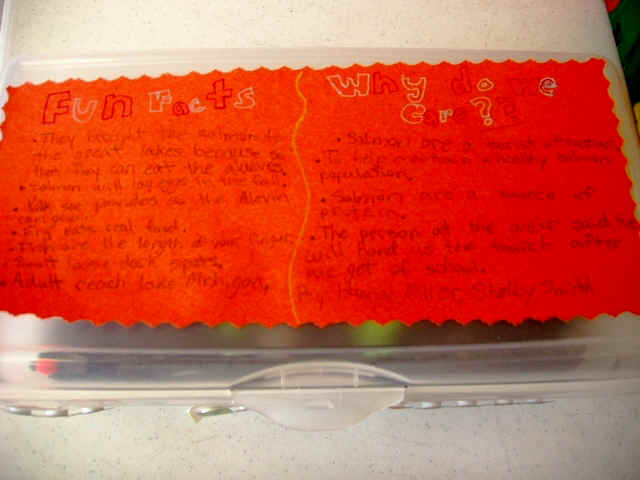 Fun Facts
• They brought the salmon to
the great lakes because so
then they can eat the alewives.
• Salmon will lay eggs in the fall.
• Yolk sac provides so the Alevin
• Fry eats real food.
the length of your finger
Adult reach lake Michigan.
Why do we
Care?
• Salmon are a tourist attraction
• To help maintain a healthy salmon
population.
• Salmon are a source of
protein.
• The person at the
will us the much after
we get of school.
By Shelby Smith